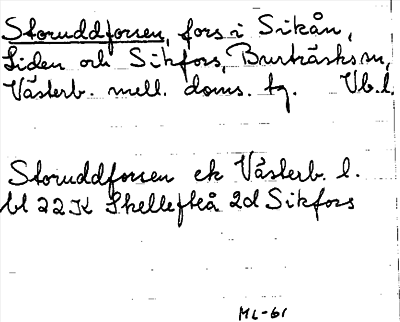 Storuddforsen, fors i Sikån,
Liden och Sikfors, Burträsks sn,
Västerb. mell. doms. tg. Vb. l.
Storuddforsen ek Västerb. l.
bl 22K Skellefteå 2d Sikfors
ML-61